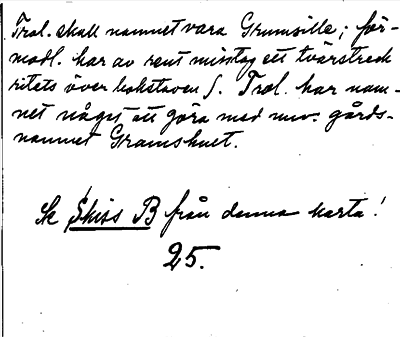 Trol. skall namnet vara Grumsille; för-
modl. har av rent misstag ett tvärstreck
ritats över bokstaven ſ. Trol. har nam-
net något att göra med nuv. gårds-
namnet Gramshuet.
Se Skiss B från denna karta!
25.